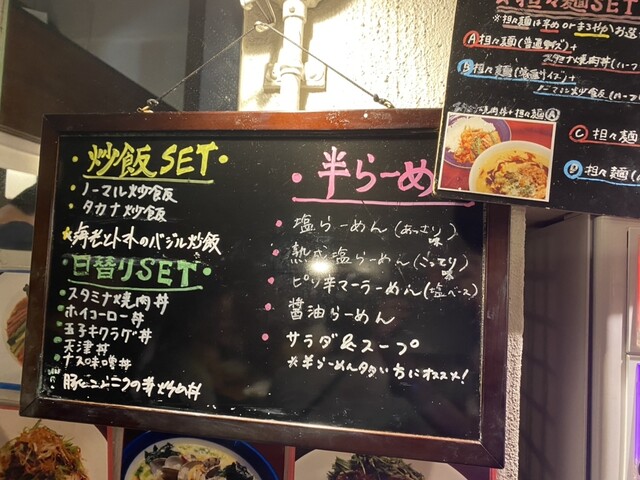 ・炒飯SET・
・ノーマル炒飯
・タカナ炒飯
★海老とトマトのバジル炒飯
日替りSET・
・スタミナ焼肉丼
・ホイコーロー丼
・玉子キクラゲ丼
・天津丼
・ナス味噌丼
・半らーめん
・塩らーめん(あっさり味)
・熟成塩らーめん(こってり味)
・ピリ辛マーラーめん(塩ベース)
・醤油らーめん
・サラダ&スープ
※半らーめん
担々麺SET
※担々麺は辛め or まろやか お選
Ⓐ担々麺(普通サイズ)+
スタミナ焼肉丼(ハーフ
Ⓑ担々麺(普通サイズ)+
ノーマル炒飯(ハーフ
焼肉丼+担々麺Ⓐ
Ⓒ担々麺
Ⓓ担々麺